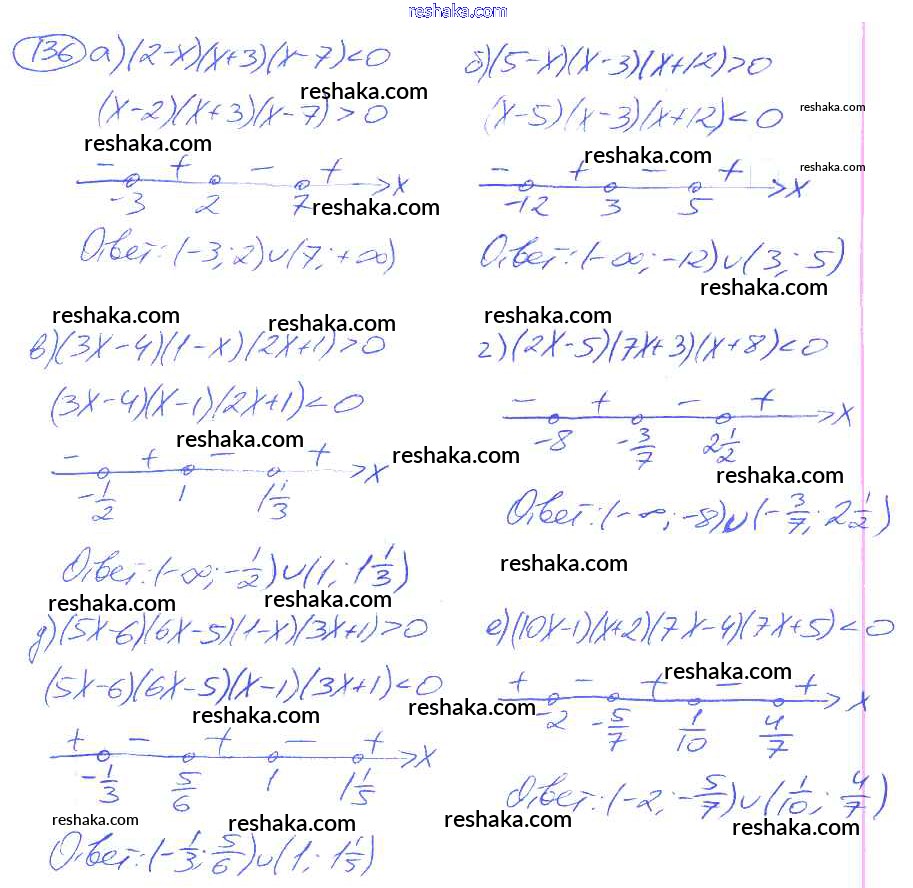 reshaka.com
136 а) (2-x)(x+3)(x-7)<0
reshaka.com
(x-2)(x+3)(x-7)>0
reshaka.com
- + - + x
-3 2 7
reshaka.com
Ответ: (-3; 2)∪(7; +∞)
б) (5-x)(x-3)(x+12)>0
reshaka.com
(x-5)(x-3)(x+12)<0
reshaka.com
reshaka.com
- + - + x
-12 3 5
Ответ: (-∞; -12)∪(3; 5)
reshaka.com
reshaka.com
reshaka.com
в) (3x-4)(1-x)(2x+1)>0
(3x-4)(x-1)(2x+1)<0
reshaka.com
- + - + x
reshaka.com
-1/2 1 1 1/3
Ответ: (-∞; -1/2)∪(1; 1 1/3)
reshaka.com
reshaka.com
reshaka.com
г) (2x-5)(7x+3)(x+8)<0
- + - + x
-8 -3/7 2 1/2
reshaka.com
Ответ: (-∞; -8)∪(-3/7; 2 1/2)
reshaka.com
д) (5x-6)(6x-5)(1-x)(3x+1)>0
(5x-6)(6x-5)(x-1)(3x+1)<0
reshaka.com
reshaka.com
+ - + - + x
-1/3 5/6 1 1 1/5
reshaka.com
reshaka.com
Ответ: (-1/3; 5/6)∪(1; 1 1/5)
е) (10x-1)(x+2)(7x-4)(7x+5)<0
reshaka.com
+ - + - + x
-2 -5/7 1/10 4/7
Ответ: (-2; -5/7)∪(1/10; 4/7)
reshaka.com
reshaka.com